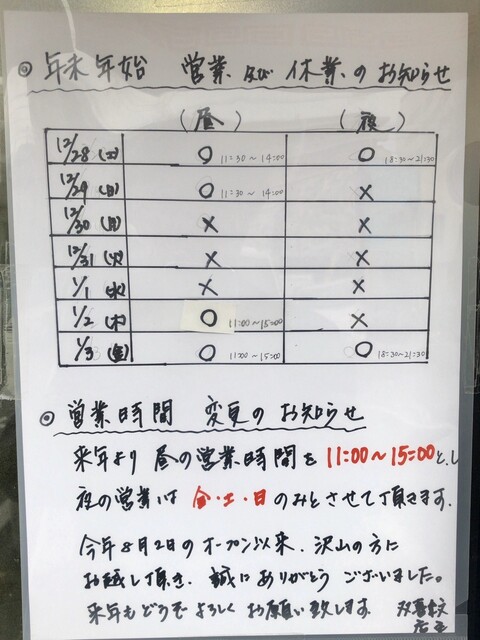 ◎ 年末年始 営業 及び 休業 の お知らせ
(昼) (夜)
12/28 (土) ○ 11:30〜14:00 ○ 18:30〜21:30
12/29 (日) ○ 11:30〜14:00 ×
12/30 (月) × ×
12/31 (火) × ×
1/1 (水) × ×
1/2 (木) ○ 11:00〜15:00 ×
1/3 (金) ○ 11:00〜15:00 ○ 18:30〜21:30
◎ 営業時間 変更の お知らせ
来年より 昼の営業時間を 11:00〜15:00とし
夜の営業は 金・土・日 のみとさせて頂きます.
今年8月2日のオープン以来、沢山の方に
お越し頂き、誠にありがとう ございました。
来年もどうぞ よろしく お願い致します
店主